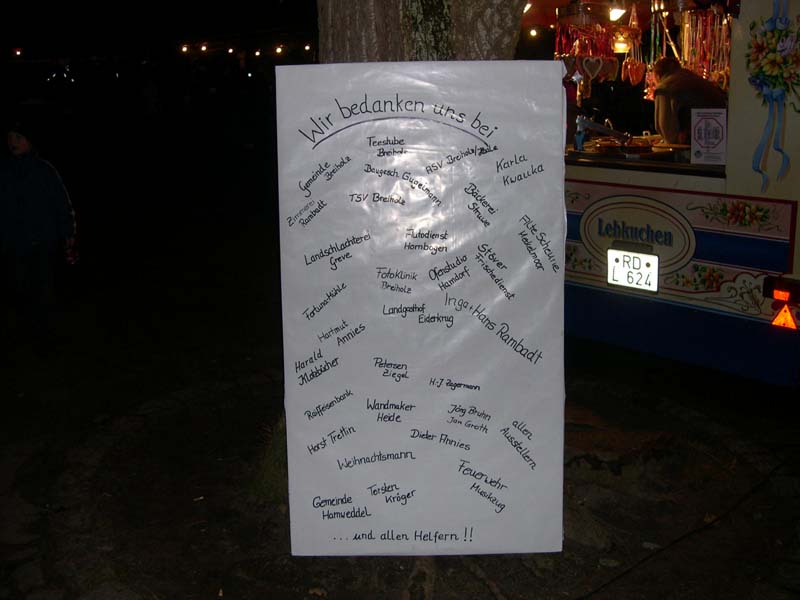 Wir bedanken uns bei
Teestube
Breiholz
Gemeinde
Breiholz
ASV Breiholz/Hale
Karla
Kwauka
Baugesch. Gugelmann
Zimmerei
Rambadt
TSV Breiholz
Bäckerei
Struve
Alte Scheune
Meckelmoor
Landschlachterei
Greve
Autodienst
Hornbogen
Stöver
Frischedienst
Fotoklinik
Breiholz
Ofenstudio
Hamdorf
Fortuna-Mühle
Landgasthof
Eiderkrug
Inga + Hans Rambadt
Hartmut
Annies
Harald
Klotzbücher
Petersen
Ziegel
H.-J. Zagermann
Raiffeisenbank
Wandmaker
Heide
Jörg Bruhn
Jan Groth
allen
Ausstellern
Horst Trettin
Dieter Annies
Weihnachtsmann
Feuerwehr
Musikzug
Gemeinde
Hamweddel
Torsten
Kröger
... und allen Helfern !!
Lebkuchen
RD
L 624